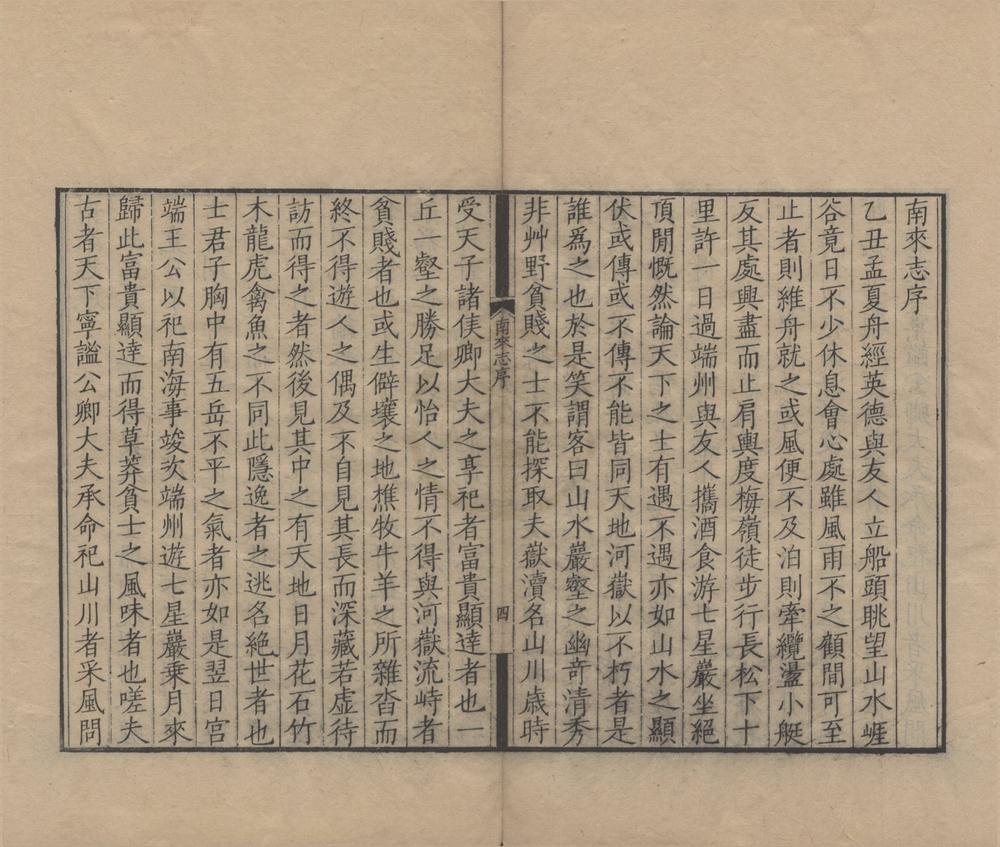 南來志序
乙丑孟夏舟經英德與友人立船頭眺望山水崕
谷竟日不少休息會心處雖風雨不之顧間可至
止者則維舟就之或風便不及泊則牽纜盪小艇
反其處興盡而止肩輿度梅嶺徒步行長松下十
里許一日過端州與友人攜酒食游七星巖坐絕
頂閒慨然論天下之士有遇不遇亦如山水之顯
伏或傳或不傳不能皆同天地河嶽以不朽者是
誰爲之也於是笑謂客曰山水巖壑之幽竒清秀
非艸野貧賤之士不能探取夫嶽瀆名山川歲時
南來志序
四
受天子諸侯卿大夫之享祀者富貴顯達者也一
丘一壑之勝足以怡人之情不得與河嶽流峙者
貧賤者也或生僻壤之地樵牧牛羊之所雜沓而
終不得遊人之偶及不自見其長而深藏若虛待
訪而得之者然後見其中之有天地日月花石竹
木龍虎禽魚之不同此隱逸者之逃名絕世者也
士君子胸中有五岳不平之氣者亦如是翌日宮
端王公以祀南海事竣次端州遊七星巖乗月來
歸此富貴顯達而得草莽貧士之風味者也嗟夫
古者天下寧謐公卿大夫承命祀山川者采風問